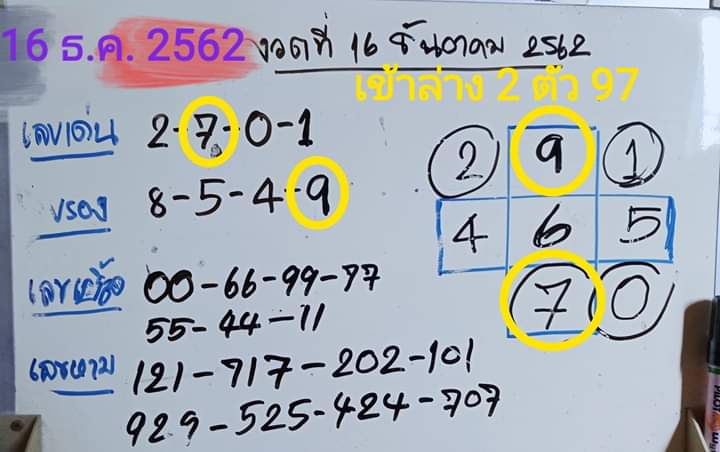 16 ธ.ค. 2562 งวดที่ 16 ธันวาคม 2562
เข้าล่าง 2 ตัว 97
เลขเด่น 2-7-0-1
รอง 8-5-4-9
เลขเบิ้ล 00-66-99-77
55-44-11
เลขหาม 121-717-202-101
929-525-424-707
2 9 1
4 6 5
7 0